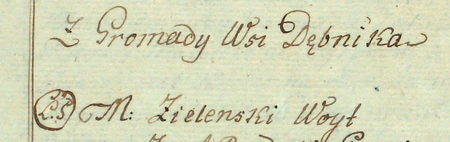 Z Gromady Wsi Dębnika
L.S M: Zielenski Woyt